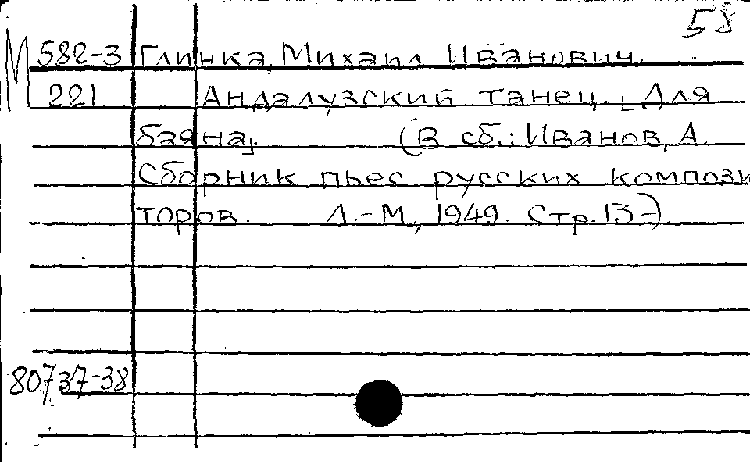 58
М 582-3 Глинка, Михаил Иванович.
221 Андалузский танец. Для
баяна,    (В сб.: Иванов, А.
Сборник пьес русских компози
торов.    Л.-М., 1949. Стр. 13-)
80737-38